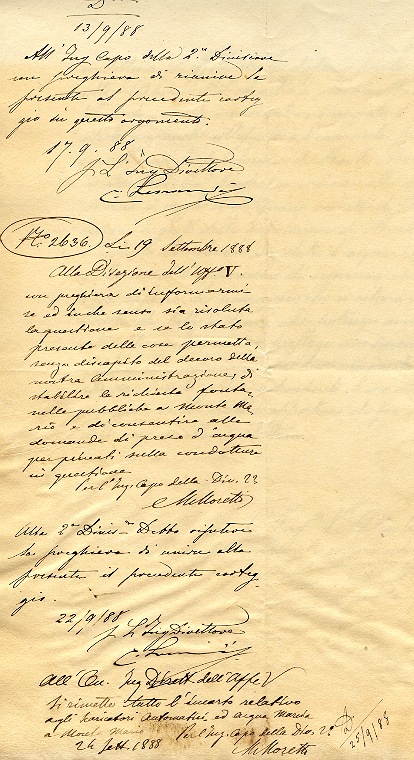 13/9/88
All' Ing Capo della 2ª Divisione
con preghiera di riunire la
presente al precedente carteg
gio su questo argomento.
17. 9. 88
p L'Ing Direttore
No. 2636. Li 19 Settembre 1888
Alla Direzione dell' Uffo V.
con preghiera di informarmi
se ed in che senso sia risoluta
la questione e se lo stato
presente delle cose permetta,
senza discapito del decoro della
nostra Amministrazione, di
stabilire le richieste fonta-
nelle pubbliche a Monte Ma-
rio e di consentire alle
domande di presa d'acqua
per privati sulla conduttura
in questione
Per l'Ing: Capo della Div. 2ª
M Moretti
Alla 2ª Divisne Debbo ripetere
la preghiera di unire alla
presente il precedente carteg-
gio.
22/9/88
p L'Ing Direttore
All' On. Ing Dirett. dell' Uffo V
Si rimette tutto l'incarto relativo
agli Inaffiatori automatici ed acqua Marcia
a Monte Mario
24 Sett. 1888
Per l'Ing Capo della Div. 2ª
M Moretti
25/9/88